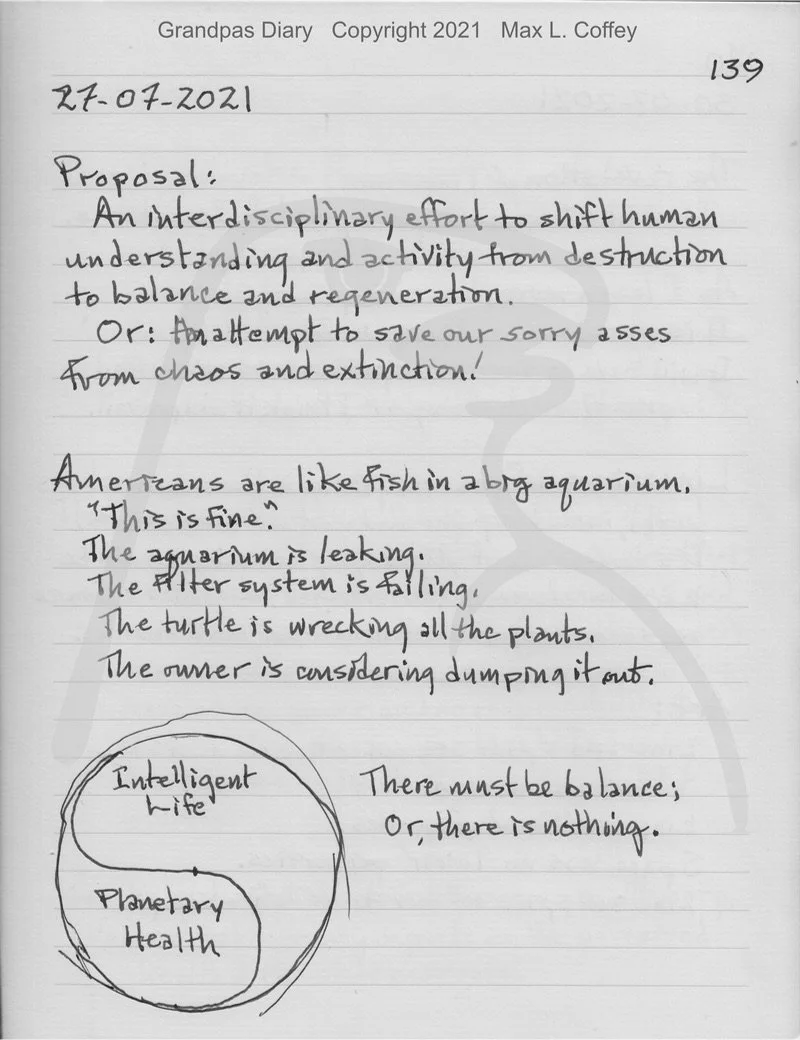 Grandpas Diary Copyright 2021 Max L. Coffey
139
27-07-2021
Proposal:
An interdisciplinary effort to shift human
understanding and activity from destruction
to balance and regeneration.
Or: An attempt to save our sorry asses
from chaos and extinction!
Americans are like fish in a big aquarium.
"This is fine."
The aquarium is leaking.
The filter system is failing.
The turtle is wrecking all the plants.
The owner is considering dumping it out.
Intelligent
Life
Planetary
Health
There must be balance;
Or, there is nothing.